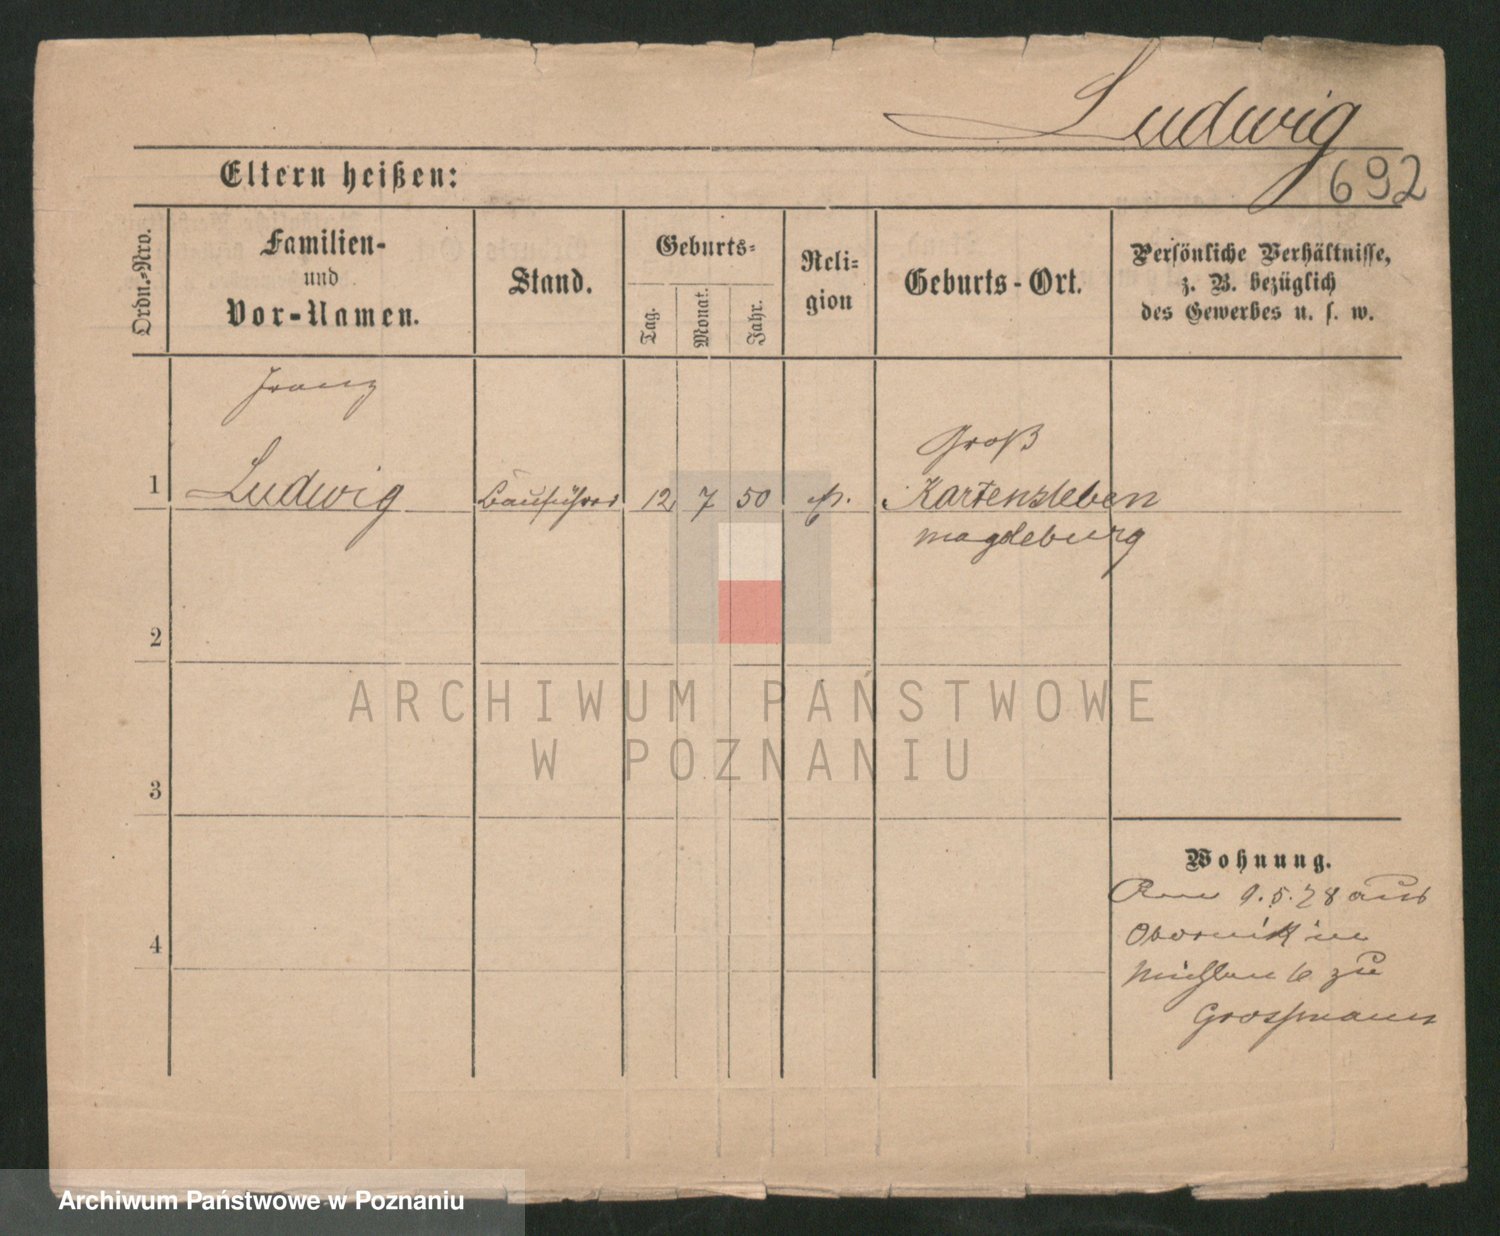 Ludwig
692
Eltern heißen:
Ordn.-Nro.
Familien-
und
Vor-Namen.
Stand.
Geburts-
Tag.
Monat.
Jahr.
Reli-
gion
Geburts-Ort.
Persönliche Verhältnisse,
z. B. bezüglich
des Gewerbes u. s. w.
Franz
1 Ludwig Bauführer 12 7 50 Groß
Kartensleben
Magdeburg
2
3
4
Wohnung.
9.5.78 aus
Obornik in
Mühlen 6 zu
Grossmann
ARCHIWUM PAŃSTWOWE
W POZNANIU
Archiwum Państwowe w Poznaniu